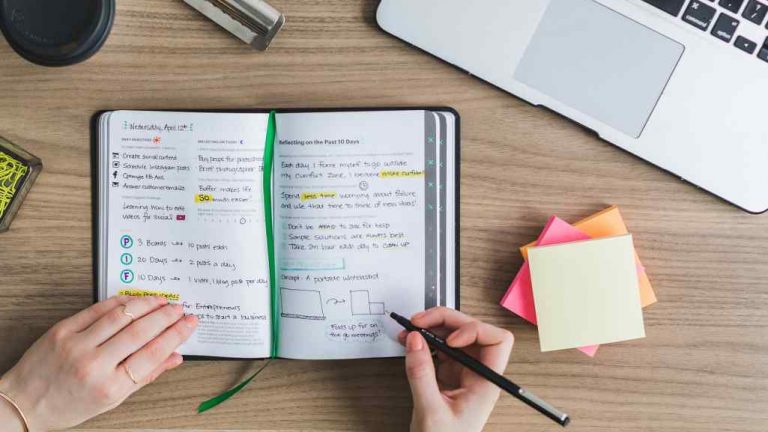 Wednesday, April 12th
Create social content
Schedule Instagram posts
Optimize FB Ads
Answer customer emails
Learning how to edit
videos for social
P 3 Boards 10 posts each
I 20 Days 2 posts a day
F 10 Days 1 video, 1 blog post per day
Blog Post Ideas
for Entrepreneurs
to start a business
Buy props for
Brief photographer
Buffer makes life
SO much easier.
Reflecting on the Past 10 Days
Each day I force myself to go outside
my comfort zone, I become more confident
Spend less time worrying about failure
and use that time to think of new ideas!
1 Don't be afraid to ask for help
2 Simple solutions are always best
3 Take 1 an hour each day to catch up
Concept - A portable whiteboard
Folds up for
on the go meetings!
command
option